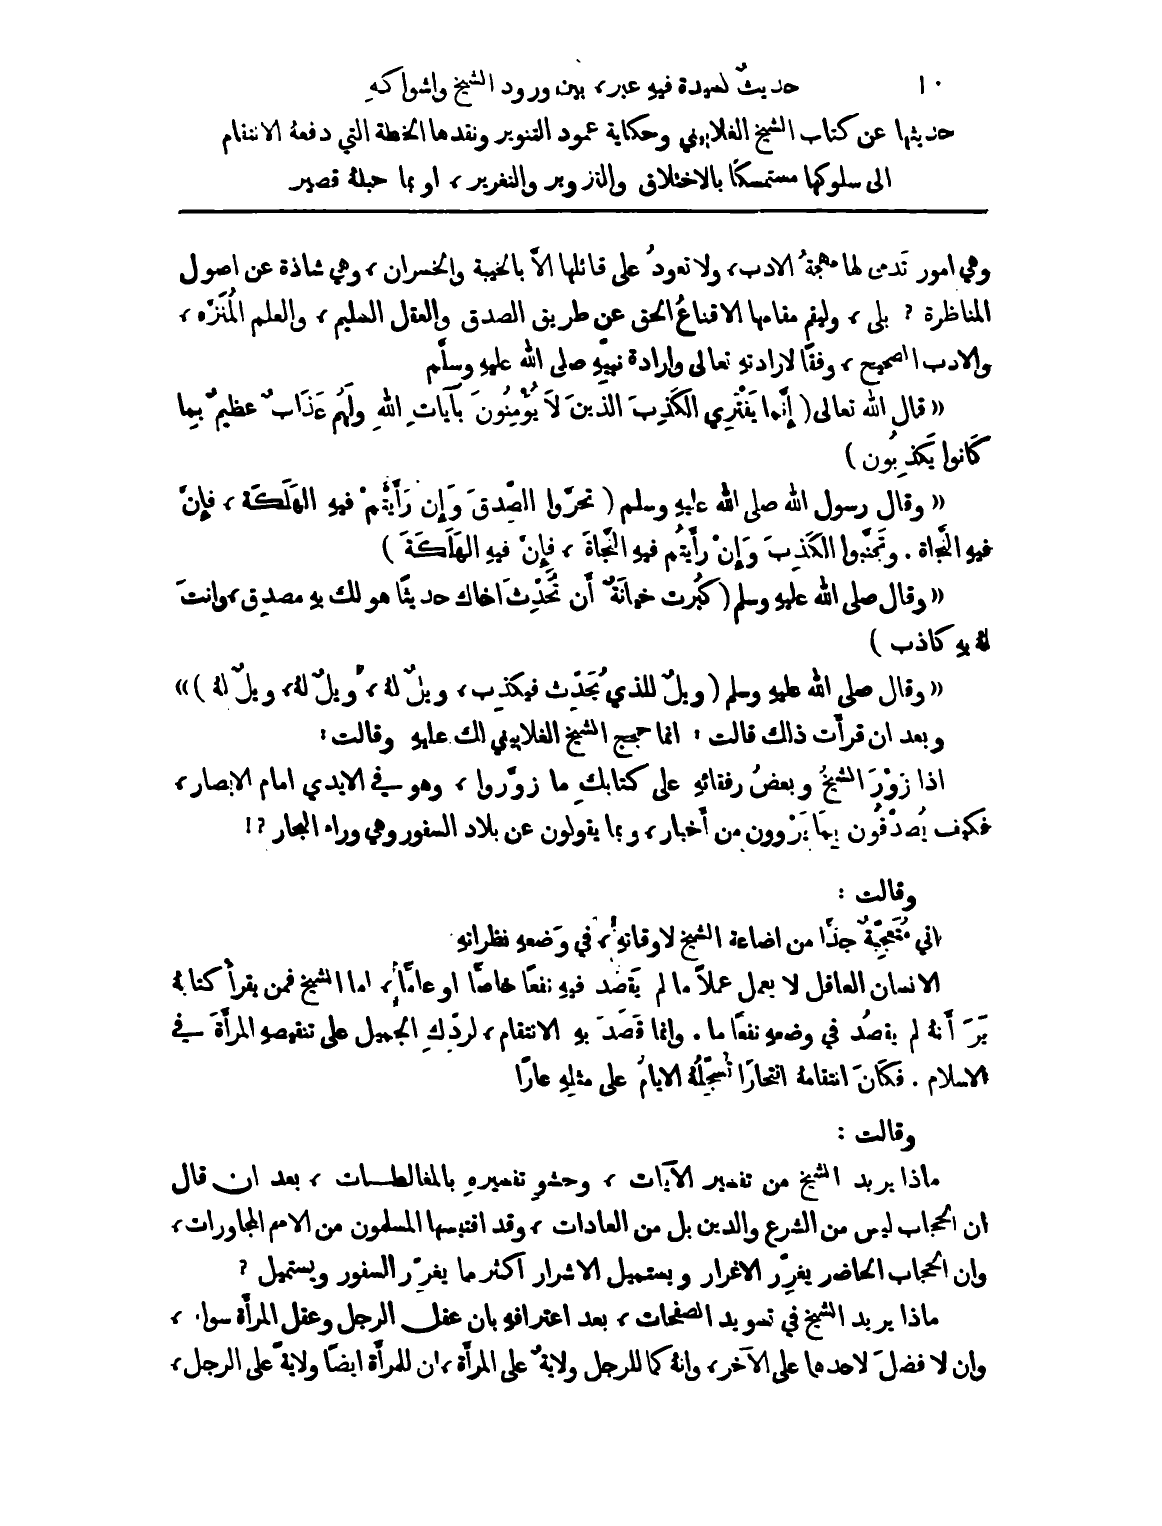 ١٠ حديثٌ لسيدة فيه عبر، بين ورود الشيخ واشواكهِ
حديثها عن كتاب الشيخ الغلاييني وحكاية عمود التنوير ونقدها الخطة التي دفعهُ الانتقام
الى سلوكها مستمسكًا بالاختلاق والتزوير والتغرير، او بما حبلهُ قصير
وهي امور تَدمى لها مهجةُ الادب، ولا تعودُ على قائلها الاَّ بالخيبة والخسران، وهي شاذة عن اصول
المناظرة ? بلى، وليقم مقامها الاقناعُ الحق عن طريق الصدق والعقل السليم، والعلم المُنَزَّه،
والادب الصحيح، وفقًا لارادته تعالى وارادة نبيّهِ صلى الله عليهِ وسلَّم
«قال الله تعالى ( إنَّما يَفْتَرِي الكَذِبَ الذينَ لاَ يُؤْمِنُونَ بآيَاتِ اللهِ ولَهُم عَذَابٌ عظيمٌ بِما
كَانوا يَكذِبُون )
«وقال رسول الله صلى الله عليهِ وسلم ( تحرَّوا الصِّدقَ وَإِن رَأَيتُمْ فيهِ الهَلَكَة، فإنَّ
فيهِ النَّجاة. وتَجَنَّبوا الكَذِبَ وَإِنْ رأَيتُم فيهِ النَّجَاةَ، فإِنَّ فيهِ الهَلَكَةَ )
«وقال صلى الله عليهِ وسلم ( كبُرت خيانَةٌ أَن تُحَدِّثَ اخاك حديثًا هو لك بهِ مصدِق، وانتَ
لهُ بهِ كاذب )
«وقال صلى الله عليهِ وسلم ( ويلٌ للذي يُحَدِّث فيكذِب، ويلٌ لهُ، ويلٌ لهُ، ويلٌ لهُ )»
وبعد ان قرأَت ذلك قالت : انما حجج الشيخ الغلاييني لك عليهِ وقالت :
اذا زوَّرَ الشيخُ وبعضُ رفقائهِ على كتابكِ ما زوَّروا، وهو في الايدي امام الابصار،
فكيف يُصدَّقُون بِمَا يَرْوون من أَخبار، وبما يقولون عن بلاد السفور وهي وراء البحار ?!
وقالت :
اني مُتَعَجِّبَةٌ جدًّا من اضاعة الشيخ لاوقاتهِ، في وَضعهِ نظراتهِ
الانسان العاقل لا يعمل عملاً ما لم يَقصد فيهِ نفعًا خاصًّا او عامًّا، اما الشيخ فمن يقرأ كتابهُ
يَرَ أَنهُ لم يقصُد في وضعهِ نفعًا ما. وانما قَصَدَ بهِ الانتقام، لردّكِ الجميل على تنقيصهِ المرأَةَ في
الاسلام. فكَانَ انتقامهُ انتحارًا تُسَجِّلُهُ الايامُ على مثلهِ عارًا
وقالت :
ماذا يريد الشيخ من تفسير الآيات، وحشوِ تفسيرهِ بالمغالطات، بعد ان قال
ان الحجاب ليس من الشرع والدين بل من العادات، وقد اقتبسها المسلمون من الامم المجاورات،
وان الحجاب الحاضر يغرّر الاغرار ويستميل الاشرار اكثر ما يغرّر السفور ويستميل ?
ماذا يريد الشيخ في تسويد الصفحات، بعد اعترافهِ بان عقل الرجل وعقل المرأَة سواء،
وان لا فضلَ لاحدها على الآخر، وانهُ كما للرجل ولايةٌ على المرأة، ان للمرأَة ايضًا ولايةً على الرجل،